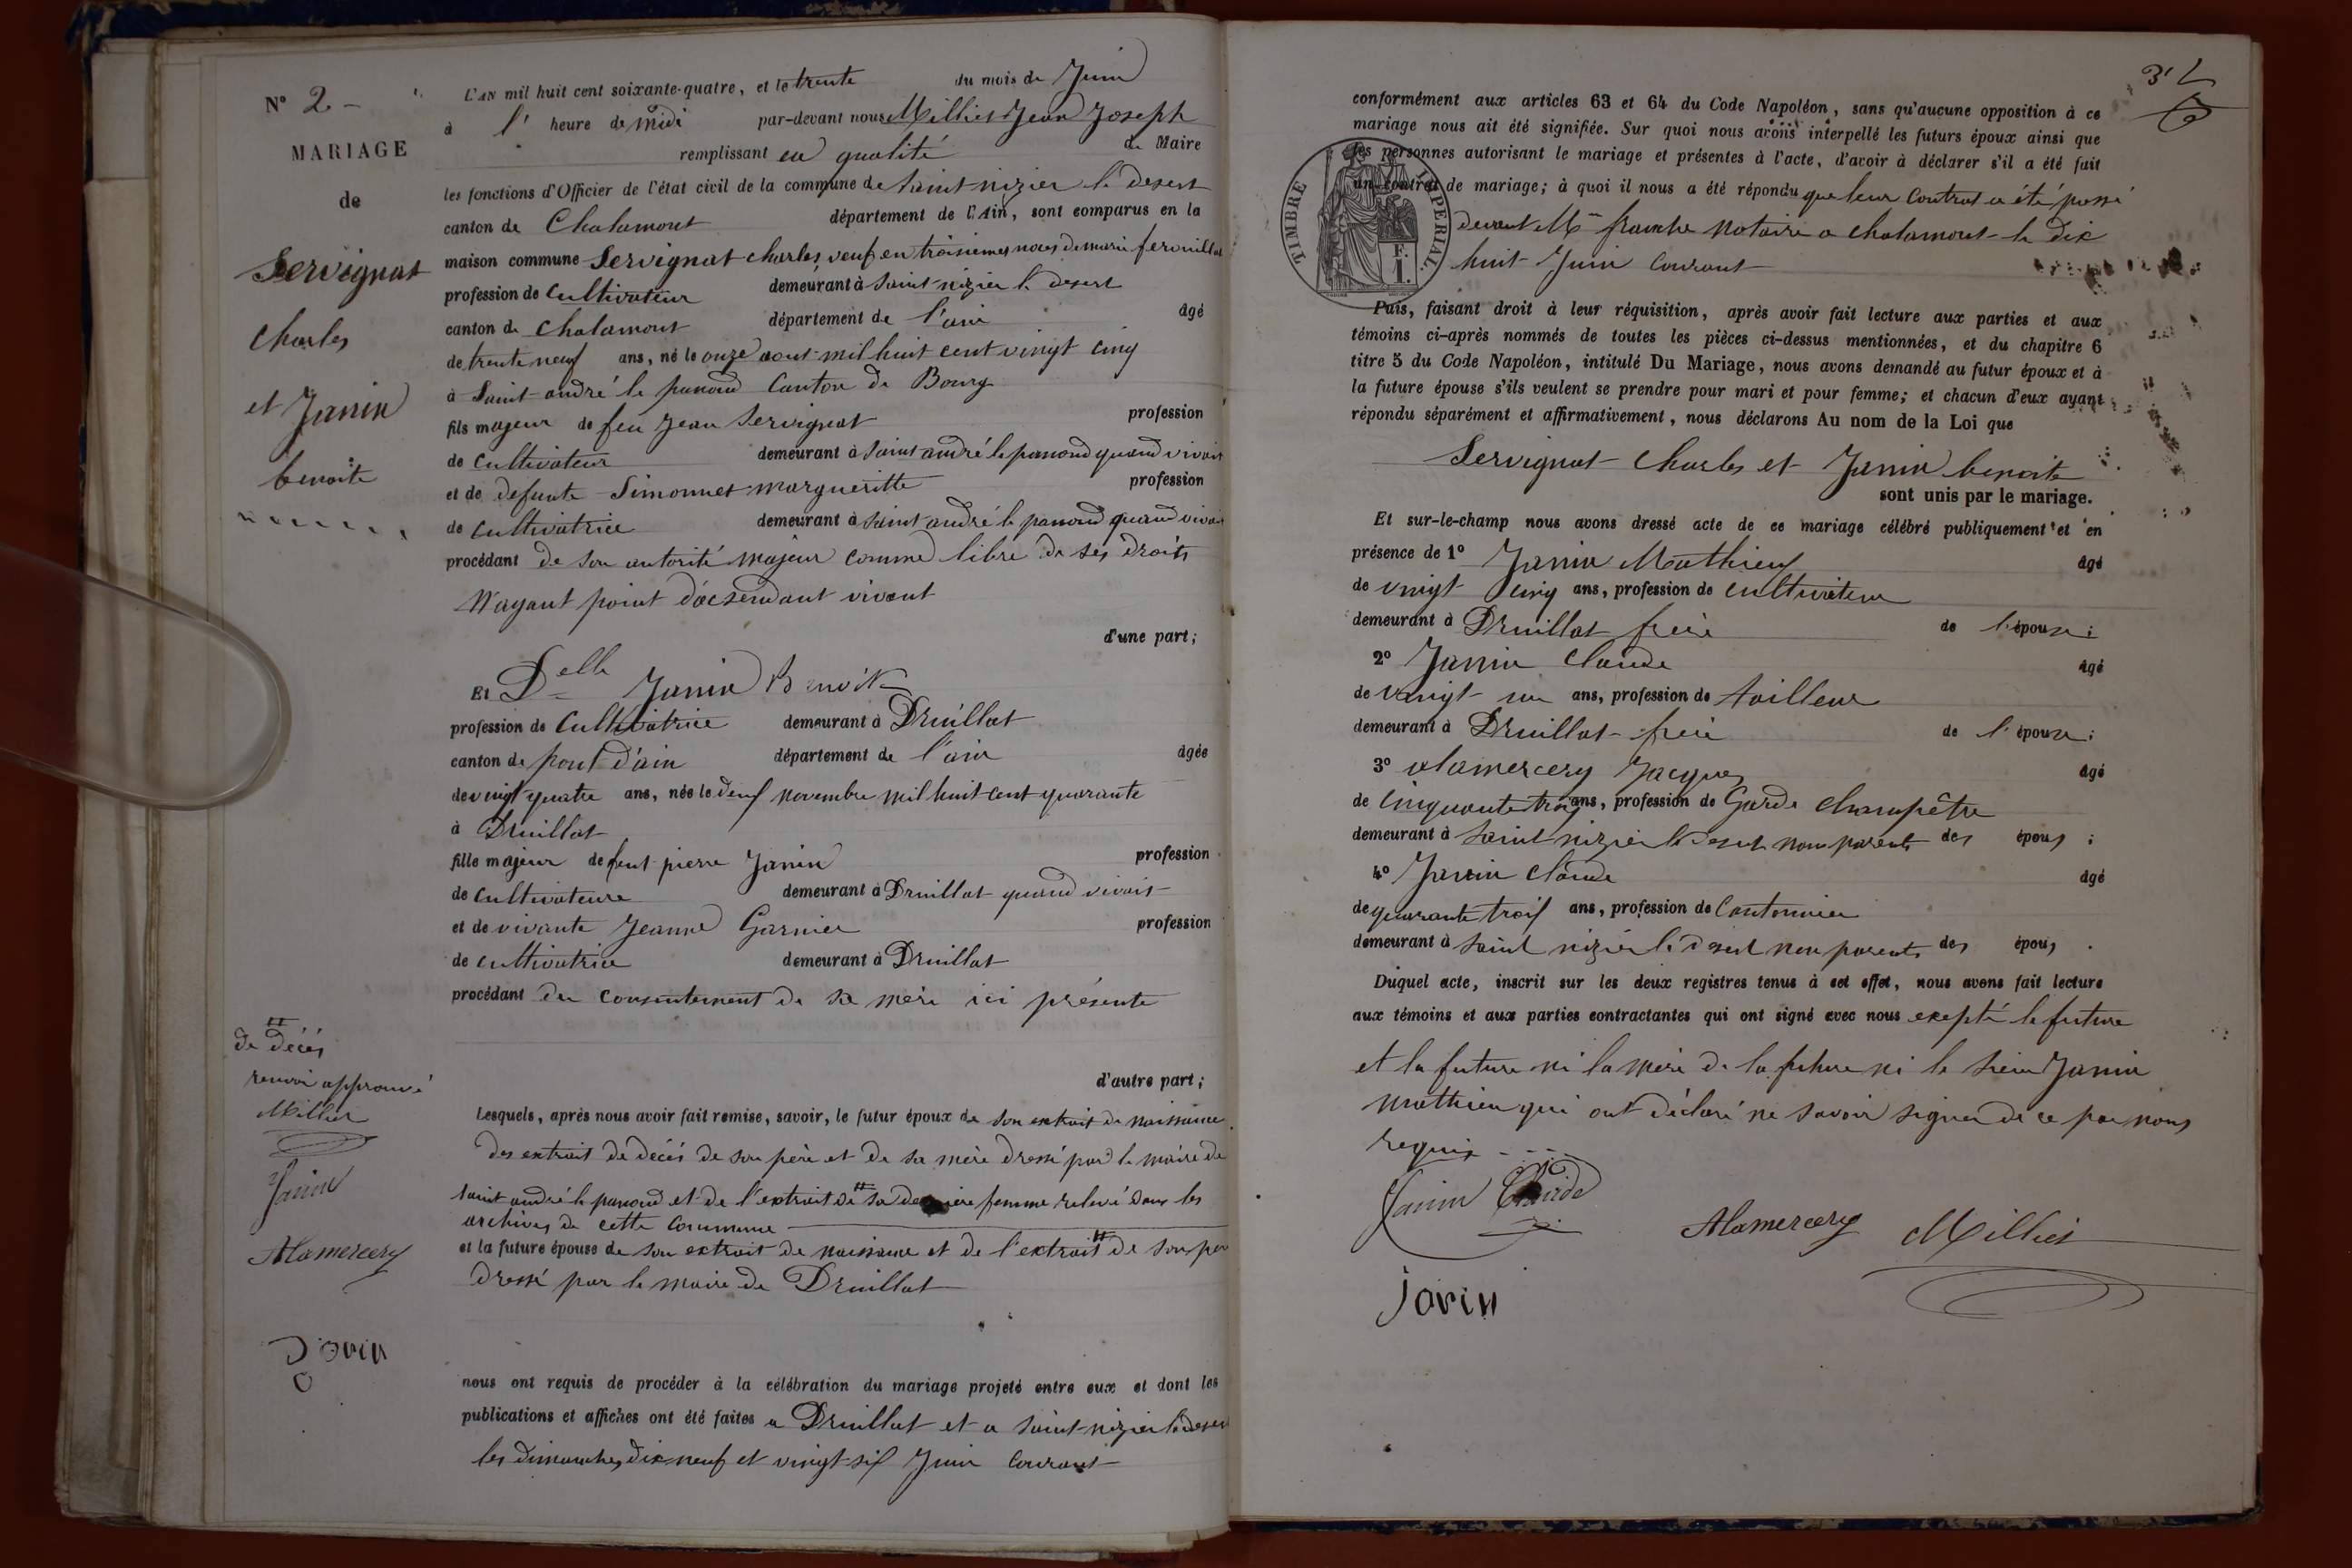 N° 2 -
MARIAGE
de
Servignat
Charles
et Janin
benoite
L'AN mil huit cent soixante-quatre, et le trente du mois de Juin
à l' heure de midi par-devant nous Millies Jean Joseph
remplissant en qualité de Maire
les fonctions d'Officier de l'état civil de la commune de Saint nizier le desert
canton de Chalamont département de l'Ain, sont comparus en la
maison commune Servignat Charles, veuf en troisiemes noces de marie ferouillat
profession de cultivateur demeurant à Saint-nizier le desert
canton de Chalamont département de l'ain âgé
de trente neuf ans, né le onze aout mil huit cent vingt cinq
à Saint andré le panoud Canton de Bourg
fils majeur de feu Jean Servignat profession
de cultivateur demeurant à Saint andré le panoud quand vivait
et de defunte Simonnet margueritte profession
de cultivatrice demeurant à Saint andré le panoud quand vivait
procédant de son autorité majeur comme libre de ses droits
N'ayant point d'acsendant vivant
d'une part;
Et Delle Janin Benoite
profession de Cultivatrice demeurant à Druillat
canton de pont d'ain département de l'ain âgée
de vingt quatre ans, née le deuf novembre mil huit cent quarante
à Druillat
fille majeur de feut pierre Janin profession
de cultivateure demeurant à Druillat quand vivait
et de vivante Jeanne Garnier profession
de cultivatrice demeurant à Druillat
procédant du consentement de sa mère ici présente
d'autre part;
Lesquels, après nous avoir fait remise, savoir, le futur époux de son extrait de naissance
des extrait de décés de son père et de sa mère dressé par le maire de
Saint andré le panoud et de l'extrait de # sa dernière femme relevé dans les
archives de cette commune
et la future épouse de son extrait de naissance et de l'extrait # de son per
dressé par le maire de Druillat
nous ont requis de procéder à la célébration du mariage projeté entre eux et dont les
publications et affiches ont été faites a Druillat et a Saint-nizier le desert
les dimanches dix neuf et vingt-six Juin Courant
#
de décés
renvoi approuvé
Millies
Janin
Alamercery
Janin
conformément aux articles 63 et 64 du Code Napoléon, sans qu'aucune opposition à ce
mariage nous ait été signifiée. Sur quoi nous avons interpellé les futurs époux ainsi que
les personnes autorisant le mariage et présentes à l'acte, d'avoir à déclarer s'il a été fait
un contrat de mariage; à quoi il nous a été répondu que leur Contrat a été passé
devant Me franche Notaire a Chalamont le dix
huit Juin Courant
TIMBRE IMPERIAL.
F.
1.
Puis, faisant droit à leur réquisition, après avoir fait lecture aux parties et aux
témoins ci-après nommés de toutes les pièces ci-dessus mentionnées, et du chapitre 6
titre 5 du Code Napoléon, intitulé Du Mariage, nous avons demandé au futur époux et à
la future épouse s'ils veulent se prendre pour mari et pour femme; et chacun d'eux ayant
répondu séparément et affirmativement, nous déclarons Au nom de la Loi que
Servignat Charles et Janin benoite
sont unis par le mariage.
Et sur-le-champ nous avons dressé acte de ce mariage célébré publiquement et en
présence de 1° Janin Mathieu âgé
de vingt cinq ans, profession de cultivateur
demeurant à Druillat frere de l'épouse;
2° Janin Claude âgé
de vingt un ans, profession de tailleur
demeurant à Druillat frere de l'épouse;
3° Alamercery Jacques âgé
de cinquante trois ans, profession de Garde champêtre
demeurant à Saint-nizier le desert non parent des époux;
4° Janin Claude âgé
de quarante trois ans, profession de Cantonnier
demeurant à Saint nizier le desert non parents des époux.
Duquel acte, inscrit sur les deux registres tenus à cet effet, nous avons fait lecture
aux témoins et aux parties contractantes qui ont signé avec nous exepté le future
et la future ni la mère de la future ni le sieur Janin
mathieu qui ont déclaré ne savoir signer de ce par nous
requis
Janin Claude
Alamercery Millies
Janin